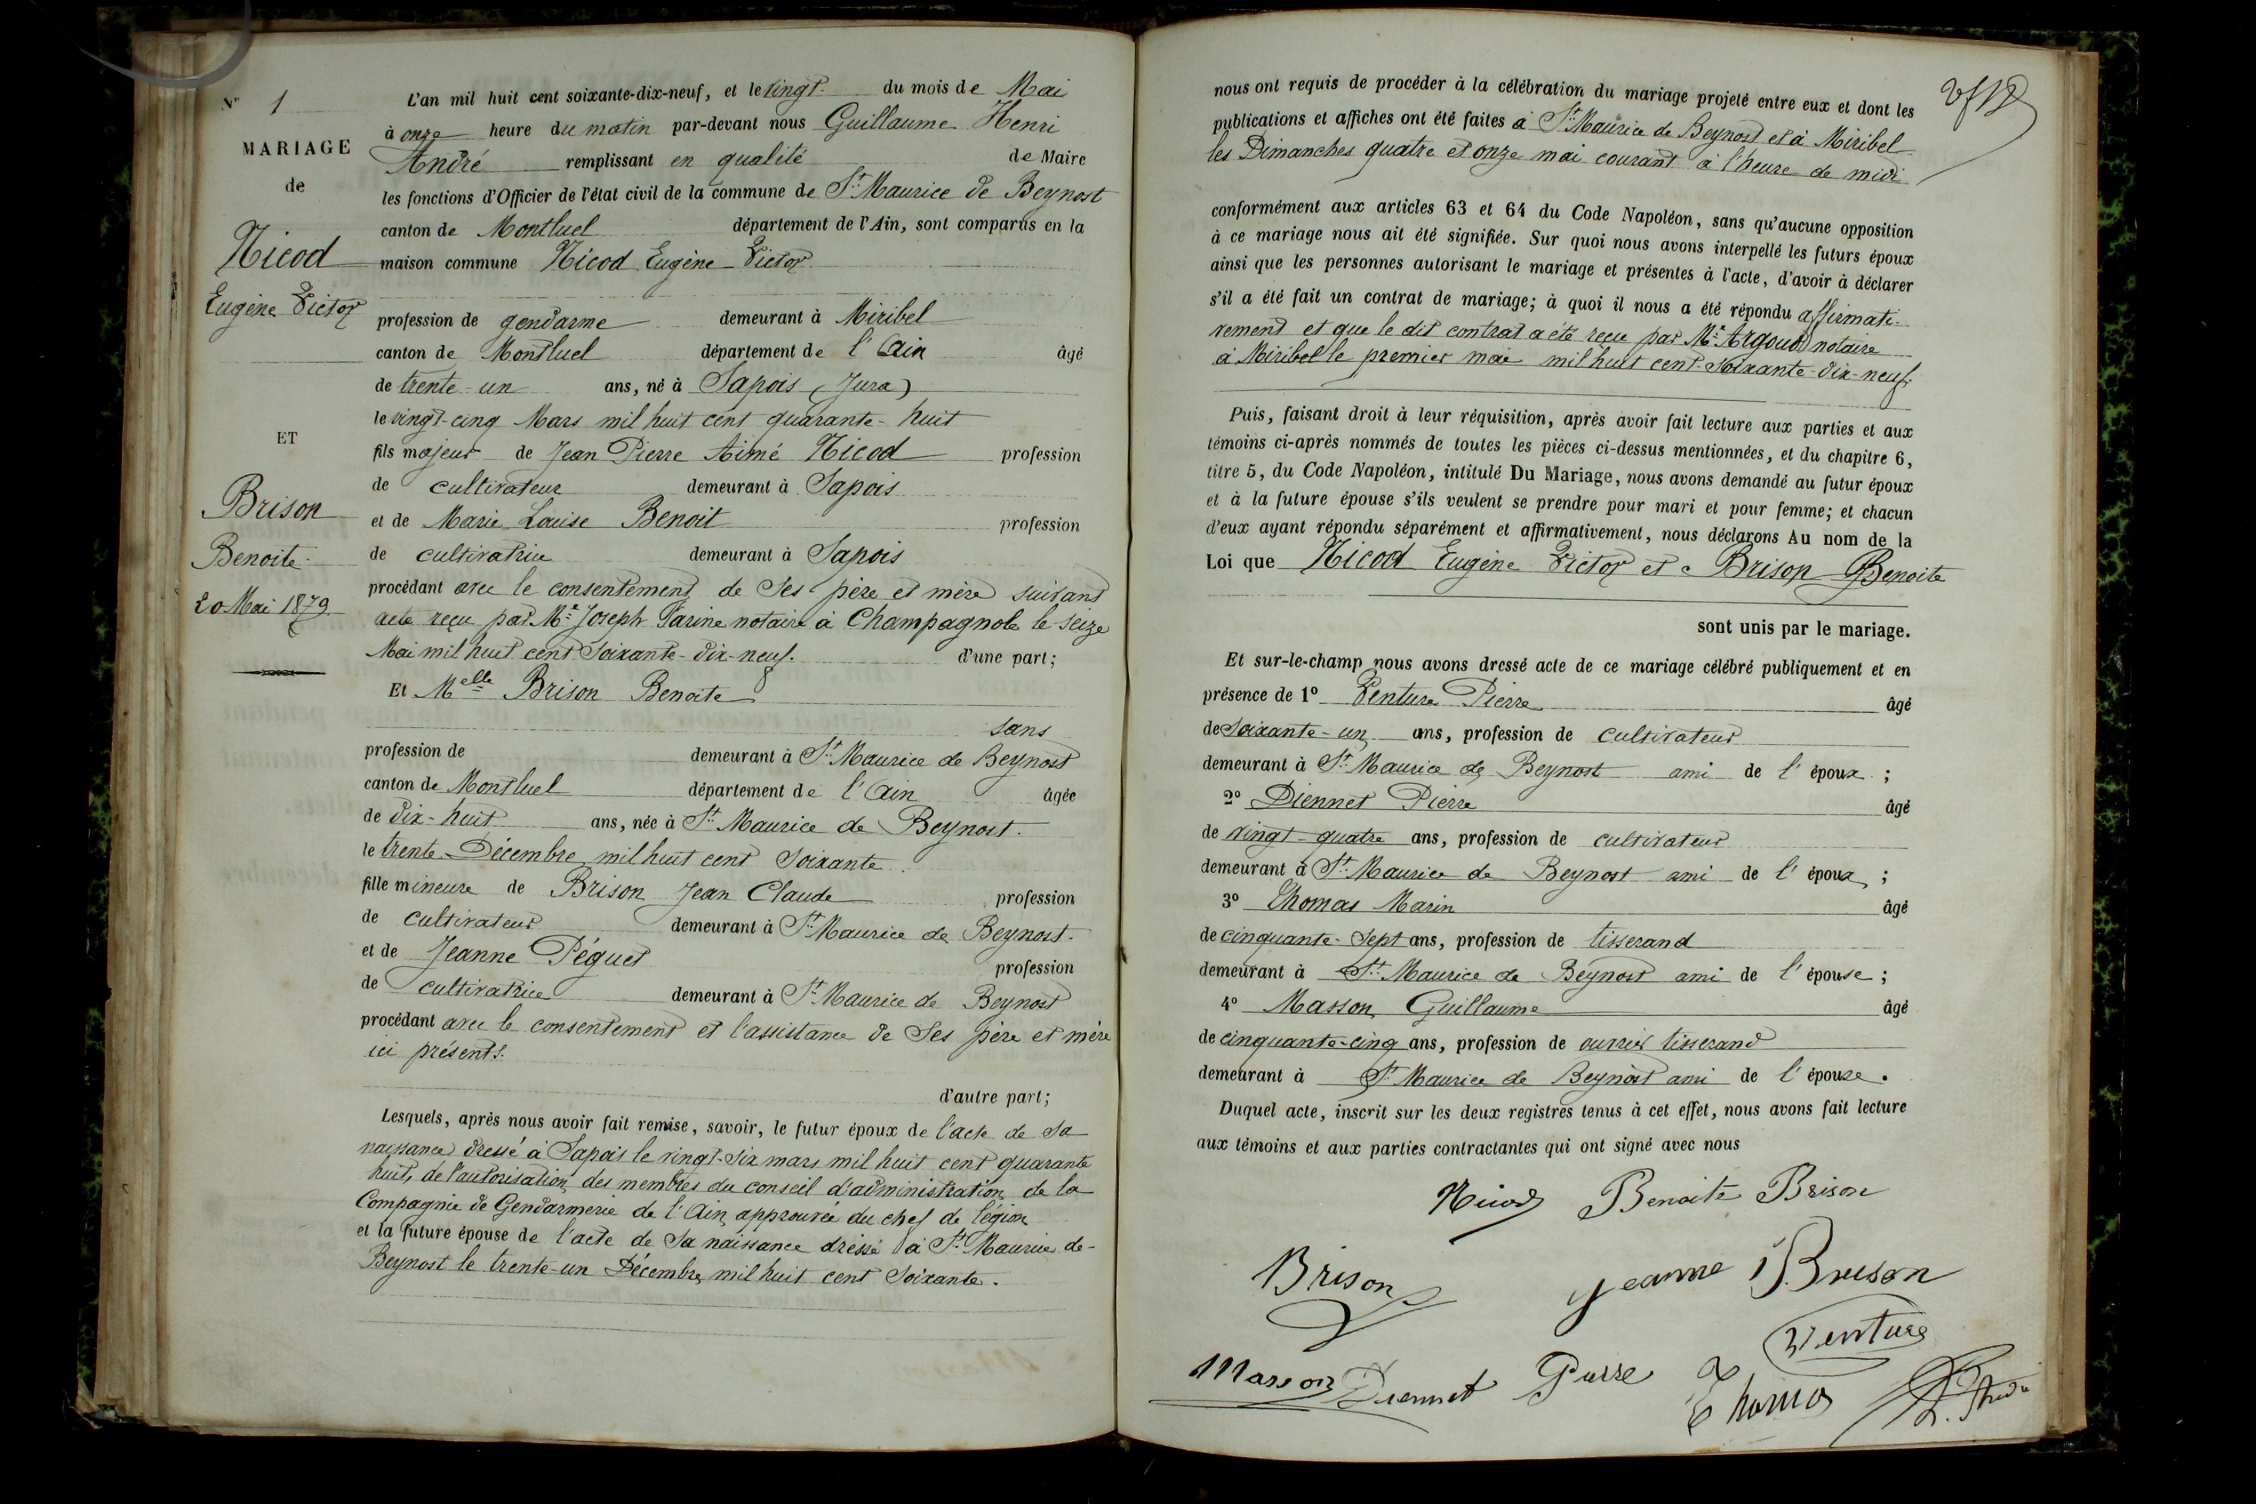 N° 1
MARIAGE
de
Nicod
Eugène Victor
ET
Brison
Benoite
20 Mai 1879
L'an mil huit cent soixante-dix-neuf, et le vingt du mois de Mai
à onze heure du matin par-devant nous Guillaume Henri
André remplissant en qualité de Maire
les fonctions d'Officier de l'état civil de la commune de St Maurice de Beynost
canton de Montluel département de l'Ain, sont comparus en la
maison commune Nicod Eugène Victor
profession de gendarme demeurant à Miribel
canton de Montluel département de l'Ain âgé
de trente-un ans, né à Sapois (Jura)
le vingt-cinq Mars mil huit cent quarante-huit
fils majeur de Jean Pierre Aimé Nicod profession
de cultivateur demeurant à Sapois
et de Marie Louise Benoit profession
de cultivatrice demeurant à Sapois
procédant avec le consentement de ses père et mère suivant
acte reçu par Me Joseph Tarine notaire à Champagnole le seize
Mai mil huit cent soixante-dix-neuf. d'une part;
Et Melle Brison Benoite
sans
profession de demeurant à St Maurice de Beynost
canton de Montluel département de l'Ain âgée
de dix-huit ans, née à St Maurice de Beynost.
le trente Décembre mil huit cent soixante.
fille mineure de Brison Jean Claude profession
de cultivateur demeurant à St Maurice de Beynost.
et de Jeanne Péguet profession
de cultivatrice demeurant à St Maurice de Beynost
procédant avec le consentement et l'assistance de ses père et mère
ici présents.
d'autre part;
Lesquels, après nous avoir fait remise, savoir, le futur époux de l'acte de sa
naissance dressé à Sapois le vingt-six mars mil huit cent quarante
huit, de l'autorisation des membres du conseil d'administration de la
Compagnie de Gendarmerie de l'Ain approuvée du chef de légion
et la future épouse de l'acte de sa naissance dressé à St Maurice de-
Beynost le trente-un Décembre mil huit cent soixante.
nous ont requis de procéder à la célébration du mariage projeté entre eux et dont les
publications et affiches ont été faites à St Maurice de Beynost et à Miribel
les Dimanches quatre et onze mai courant à l'heure de midi
conformément aux articles 63 et 64 du Code Napoléon, sans qu'aucune opposition
à ce mariage nous ait été signifiée. Sur quoi nous avons interpellé les futurs époux
ainsi que les personnes autorisant le mariage et présentes à l'acte, d'avoir à déclarer
s'il a été fait un contrat de mariage; à quoi il nous a été répondu affirmati-
vement et que le dit contrat a été reçu par Me Argoud notaire
à Miribel le premier mai mil huit cent soixante-dix-neuf.
Puis, faisant droit à leur réquisition, après avoir fait lecture aux parties et aux
témoins ci-après nommés de toutes les pièces ci-dessus mentionnées, et du chapitre 6,
titre 5, du Code Napoléon, intitulé Du Mariage, nous avons demandé au futur époux
et à la future épouse s'ils veulent se prendre pour mari et pour femme; et chacun
d'eux ayant répondu séparément et affirmativement, nous déclarons Au nom de la
Loi que Nicod Eugène Victor et Brison Benoite
sont unis par le mariage.
Et sur-le-champ nous avons dressé acte de ce mariage célébré publiquement et en
présence de 1° Venture Pierre âgé
de soixante-un ans, profession de cultivateur
demeurant à St Maurice de Beynost ami de l'époux;
2° Diennet Pierre âgé
de vingt-quatre ans, profession de cultivateur
demeurant à St Maurice de Beynost ami de l'époux;
3° Thomas Marin âgé
de cinquante-sept ans, profession de tisserand
demeurant à St Maurice de Beynost ami de l'épouse;
4° Masson Guillaume âgé
de cinquante-cinq ans, profession de ouvrier tisserand
demeurant à St Maurice de Beynost ami de l'épouse.
Duquel acte, inscrit sur les deux registres tenus à cet effet, nous avons fait lecture
aux témoins et aux parties contractantes qui ont signé avec nous
Nicod Benoite Brison
Brison Jeanne Brison
Venture
Masson Diennet Pierre Thomas